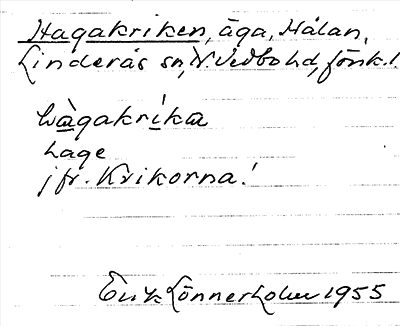 Hagakriken, äga, Hålan,
Linderås sn, N. Vedbo hd, Jönk.l.
hàgakríka
Läge
jfr. Krikorna!
Erik Lönnerholm 1955